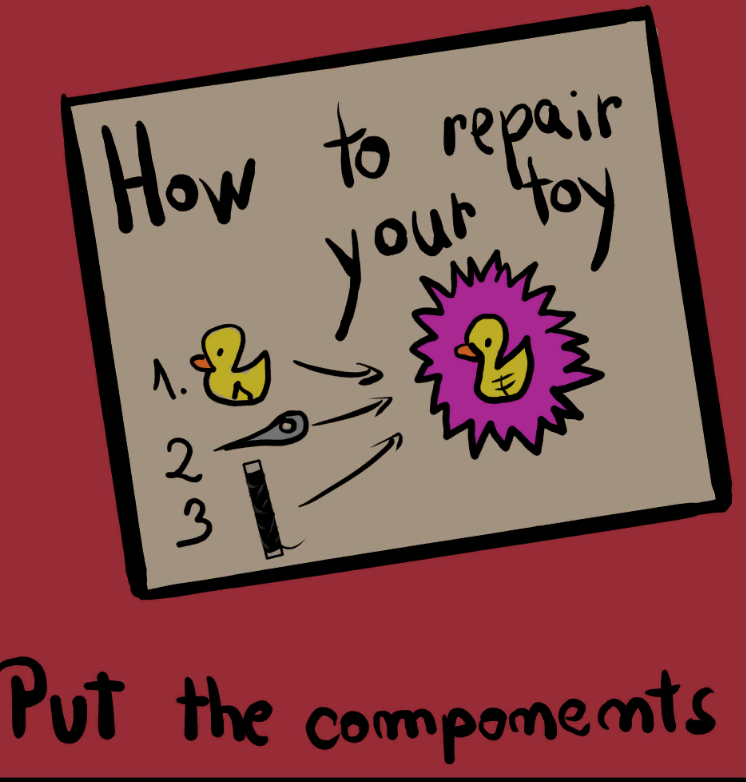 How to repair
your toy
1.
2
3
Put the components